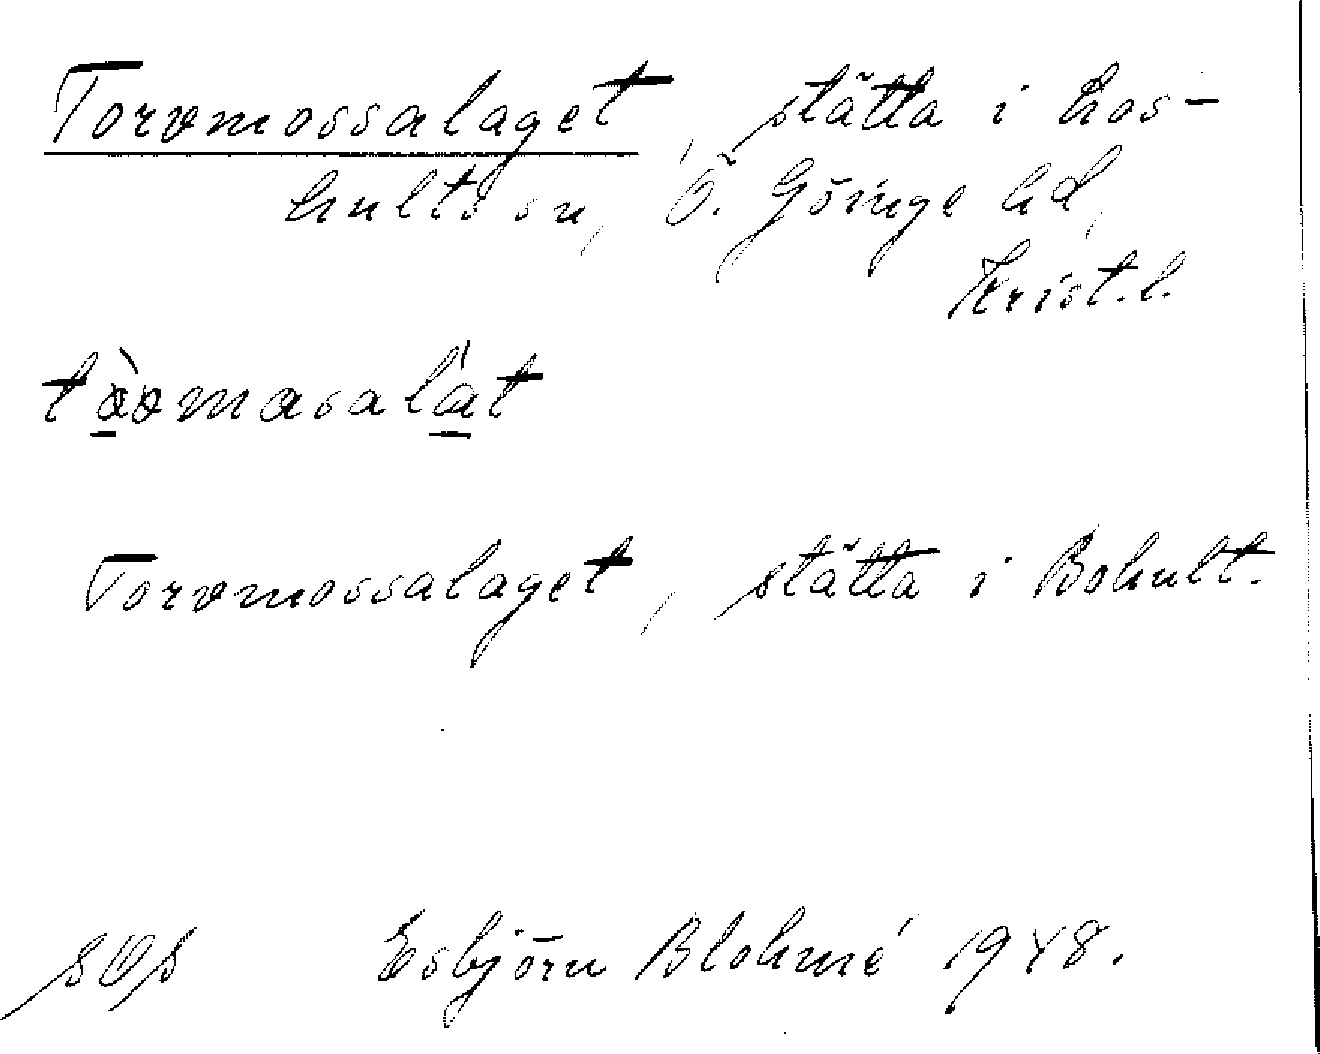 Torvmossalaget, stätta i Los-
hults sn, Ö. Göinge hd,
Krist.l.
tòvmasalát
Torvmossalaget, stätta i Bohult.
Esbjörn Blohmé 1948.